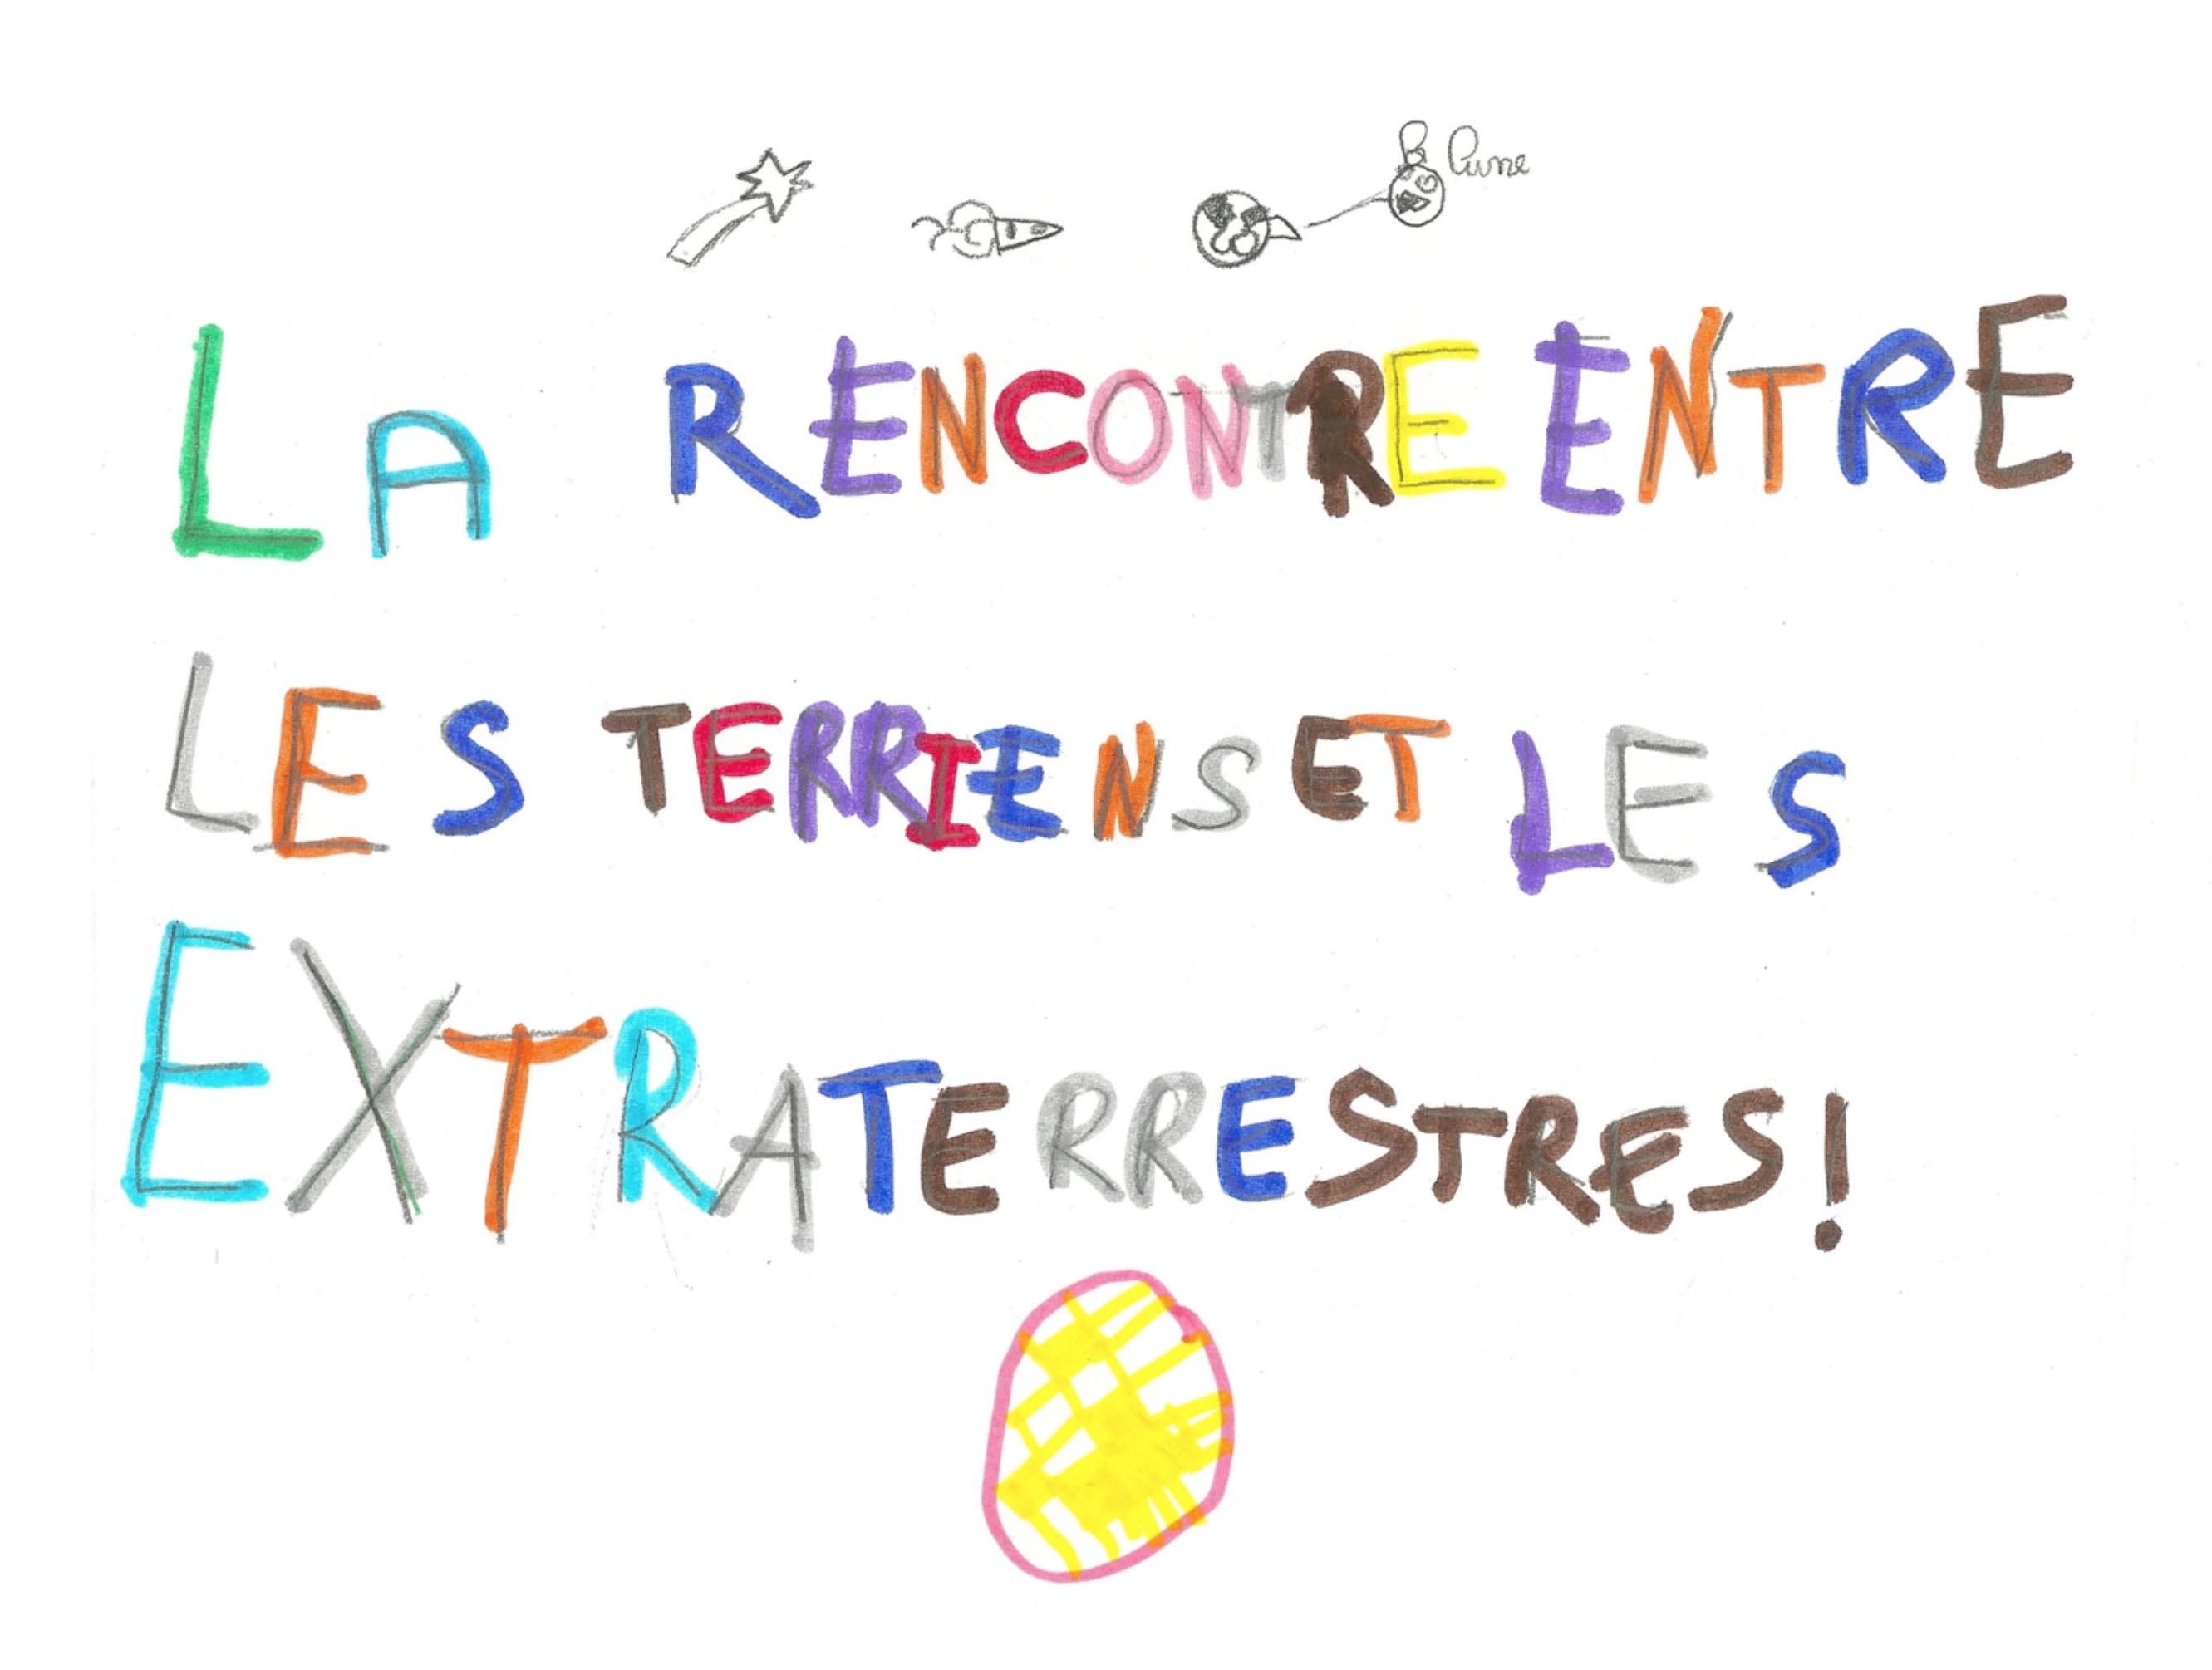 lune
LA RENCONTRE ENTRE
LES TERRIENS ET LES
EXTRATERRESTRES!